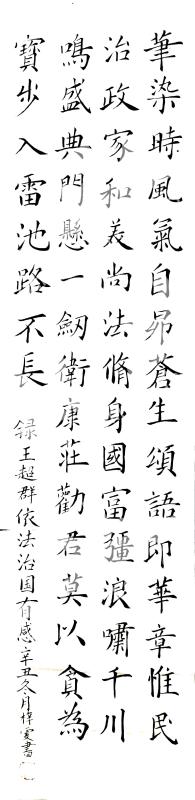 筆染時風氣自昂蒼生頌語即華章惟民
治政家和美尚法脩身國富彊浪嘯千川
鳴盛典門懸一劒衛康莊勸君莫以貪為
寳步入雷池路不長
録王超群依法治国有感辛丑冬月偉雯書